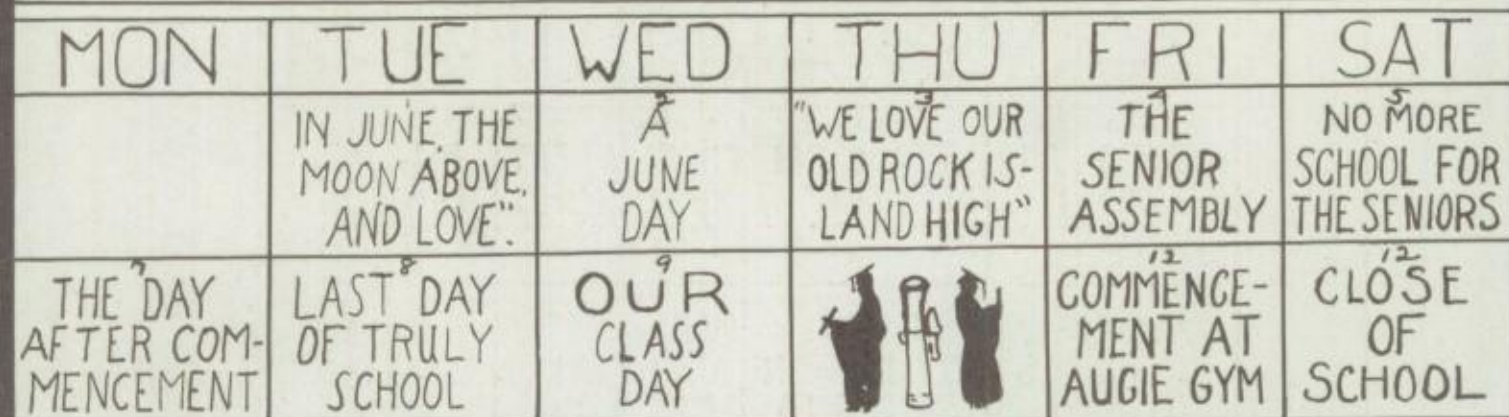 MON
TUE
WED
THU
FRI
SAT
IN JUNE, THE
MOON ABOVE,
AND LOVE".
2
A
JUNE
DAY
3
"WE LOVE OUR
OLD ROCK IS-
LAND HIGH"
4
THE
SENIOR
ASSEMBLY
5
NO MORE
SCHOOL FOR
THE SENIORS
7
THE DAY
AFTER COM-
MENCEMENT
8
LAST DAY
OF TRULY
SCHOOL
9
OUR
CLASS
DAY
COMMENCE-
MENT AT
AUGIE GYM
12
CLOSE
OF
SCHOOL